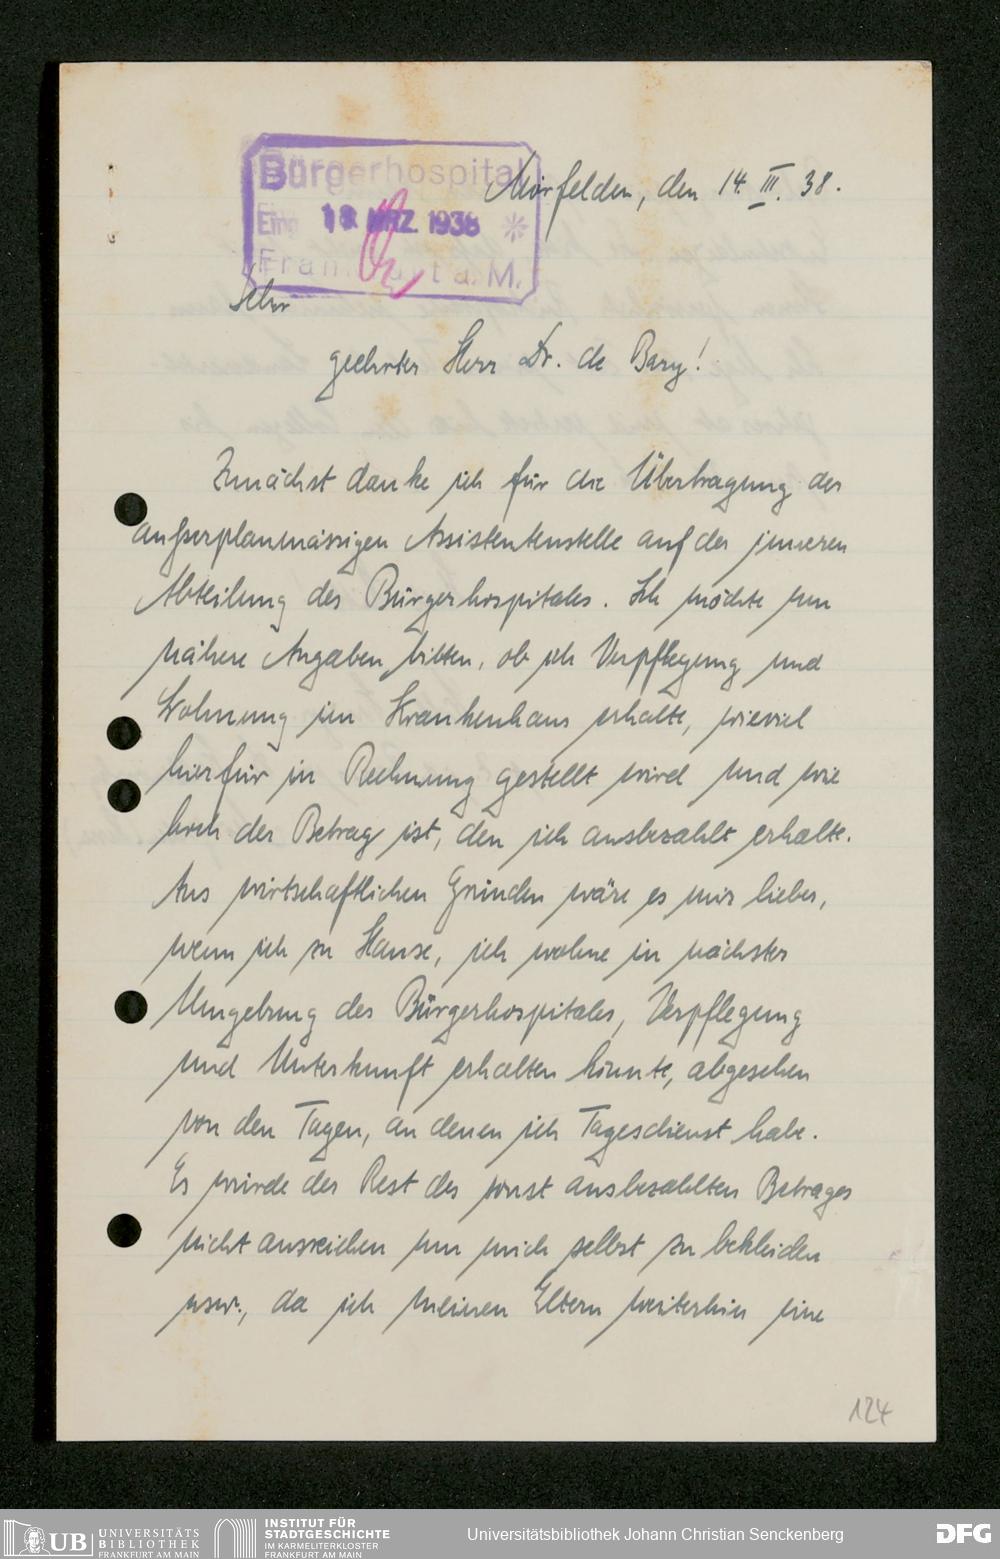 Bürgerhospital
Eing. 18. MRZ. 1938 *
Frankfurt a. M.
Mörfelden, den 14. III. 38.
Sehr
geehrter Herr Dr. de Bary!
Zunächst danke ich für die Übertragung der
außerplanmässigen Assistentenstelle auf der inneren
Abteilung des Bürgerhospitales. Ich möchte um
nähere Angaben bitten, ob ich Verpflegung und
Wohnung im Krankenhaus erhalte, wieviel
hierfür in Rechnung gestellt wird und wie
hoch der Betrag ist, den ich ausbezahlt erhalte.
Aus wirtschaftlichen Gründen wäre es mir lieber,
wenn ich zu Hause, ich wohne in nächster
Umgebung des Bürgerhospitales, Verpflegung
und Unterkunft erhalten könnte, abgesehen
von den Tagen, an denen ich Tagesdienst habe.
Es würde der Rest des sonst ausbezahlten Betrages
nicht ausreichen um mich selbst zu bekleiden
usw., da ich meinen Eltern weiterhin eine
124
UB UNIVERSITÄTS
BIBLIOTHEK
FRANKFURT AM MAIN
INSTITUT FÜR
STADTGESCHICHTE
IM KARMELITERKLOSTER
FRANKFURT AM MAIN
Universitätsbibliothek Johann Christian Senckenberg
DFG